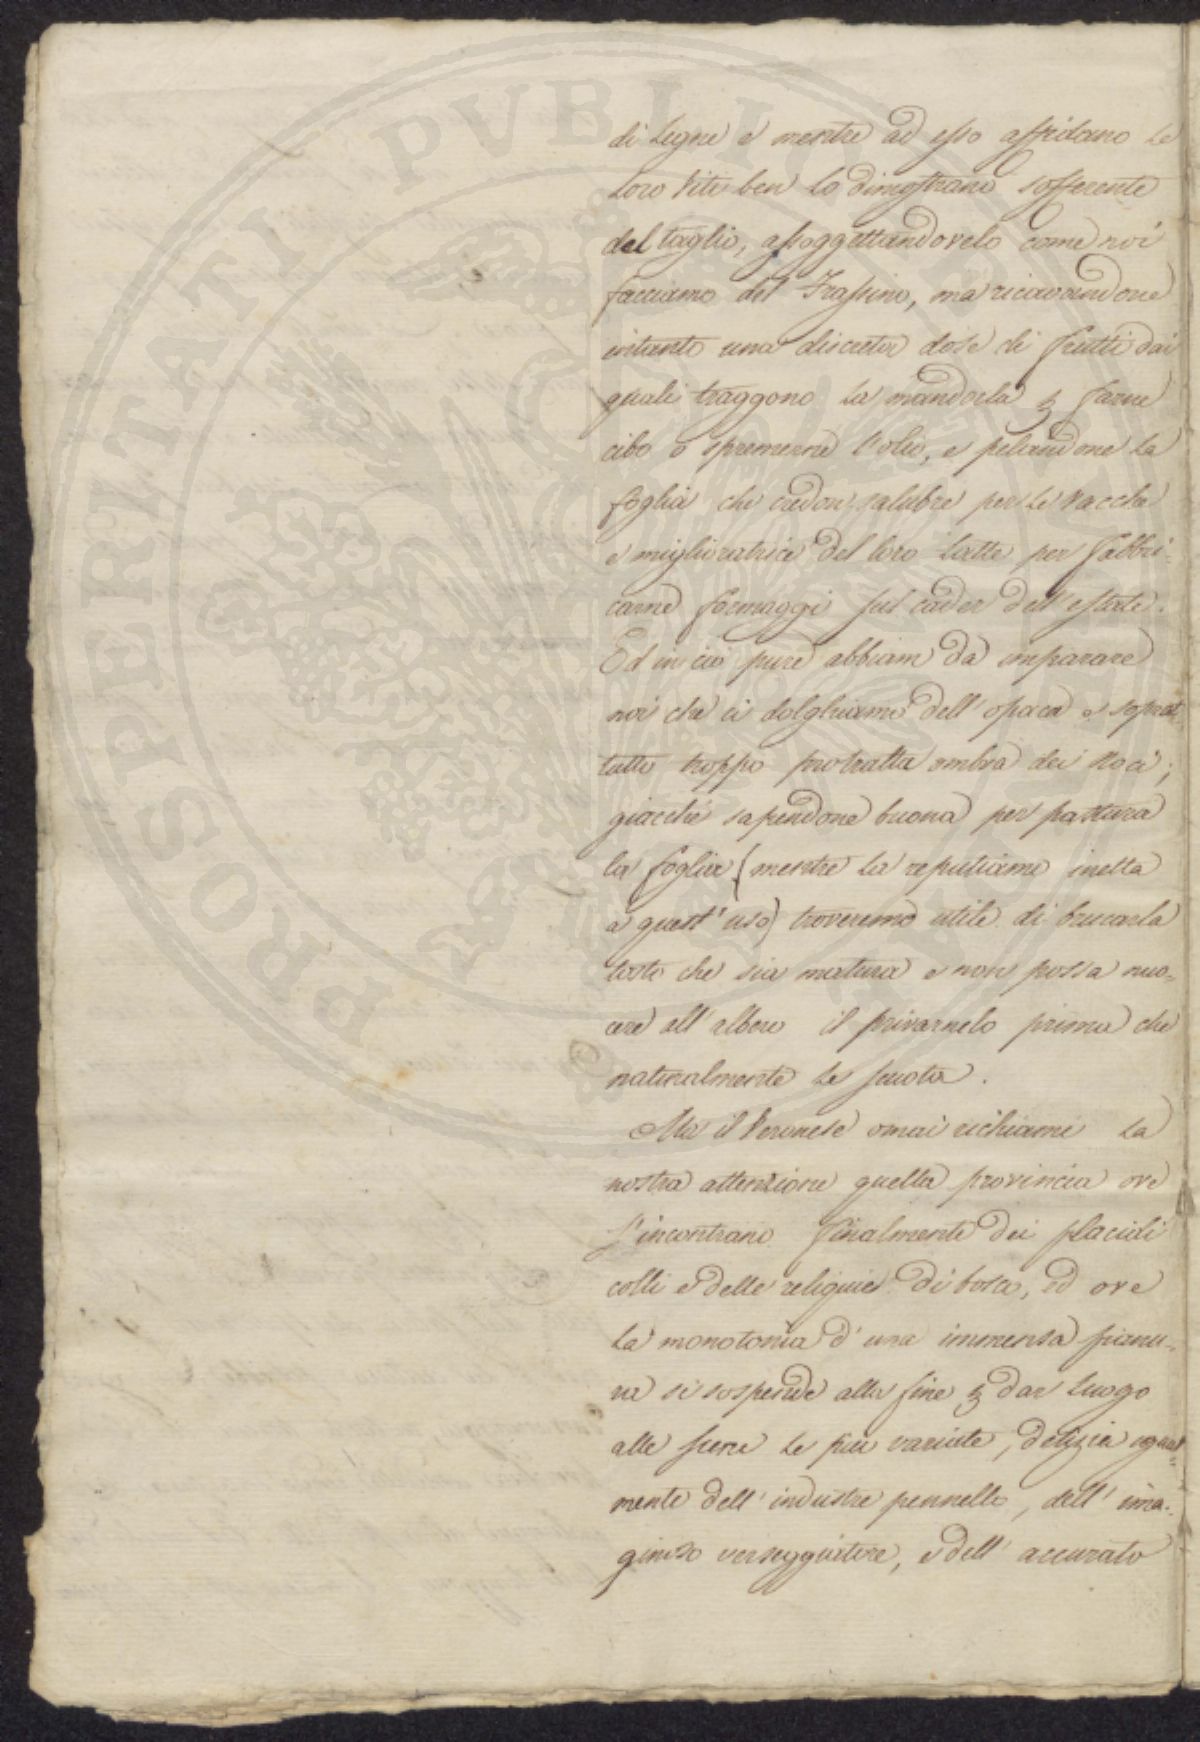 di legne e mentre ad esso affidano le
loro viti ben lo dimostrano sofferente
del taglio, assoggettandovelo come noi
facciamo del Frassino, ma ricavandone
intanto una discreta dose di frutti dai
quali traggono la mandorla p farne
cibo o spremerne l'olio, e pelandone la
foglia che credon salubre per le vacche
e miglioratrice del loro latte per fabbri-
carne formaggi sul cader dell'estate.
Ed in ciò pure abbiam da imparare
noi che ci dolghiamo dell'opaca e soprat-
tutto troppo protratta ombra dei Noci;
giacché sapendone buona per pastura
la foglia (mentre la reputiamo inetta
a quest'uso) troveremo utile di brucarla
tosto che sia matura e non possa nuo-
cere all'albero il privarnelo prima che
naturalmente le scuota.
Ma il Veronese omai richiami la
nostra attenzione quella provincia ove
s'incontrano finalmente dei placidi
colli e delle reliquie di bosco, ed ove
la monotonia d'una immensa pianu-
ra si sospende alla fine p dar luogo
alle scene le più variate, delizia egual-
mente dell'industre pennello, dell'ima-
ginoso verseggiatore, e dell'accurato
PROSPERITATI PVBLICAE